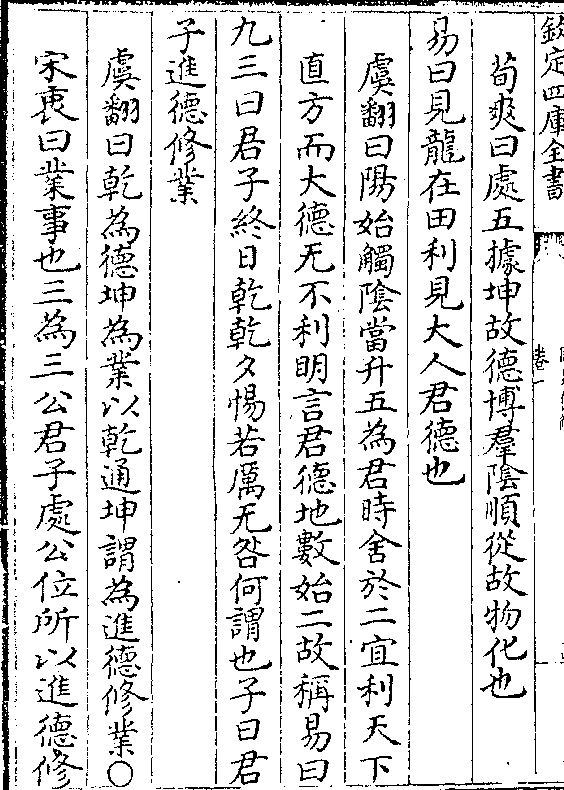 欽定四庫全書
卷一
荀爽曰處五據坤故德博羣陰順從故物化也
易曰見龍在田利見大人君德也
虞翻曰陽始觸陰當升五為君時舍於二宜利天下
直方而大德无不利明言君德地數始二故稱易曰
九三曰君子終日乾乾夕惕若厲无咎何謂也子曰君
子進德修業
虞翻曰乾為德坤為業以乾通坤謂為進德修業○
宋衷曰業事也三為三公君子處公位所以進德修